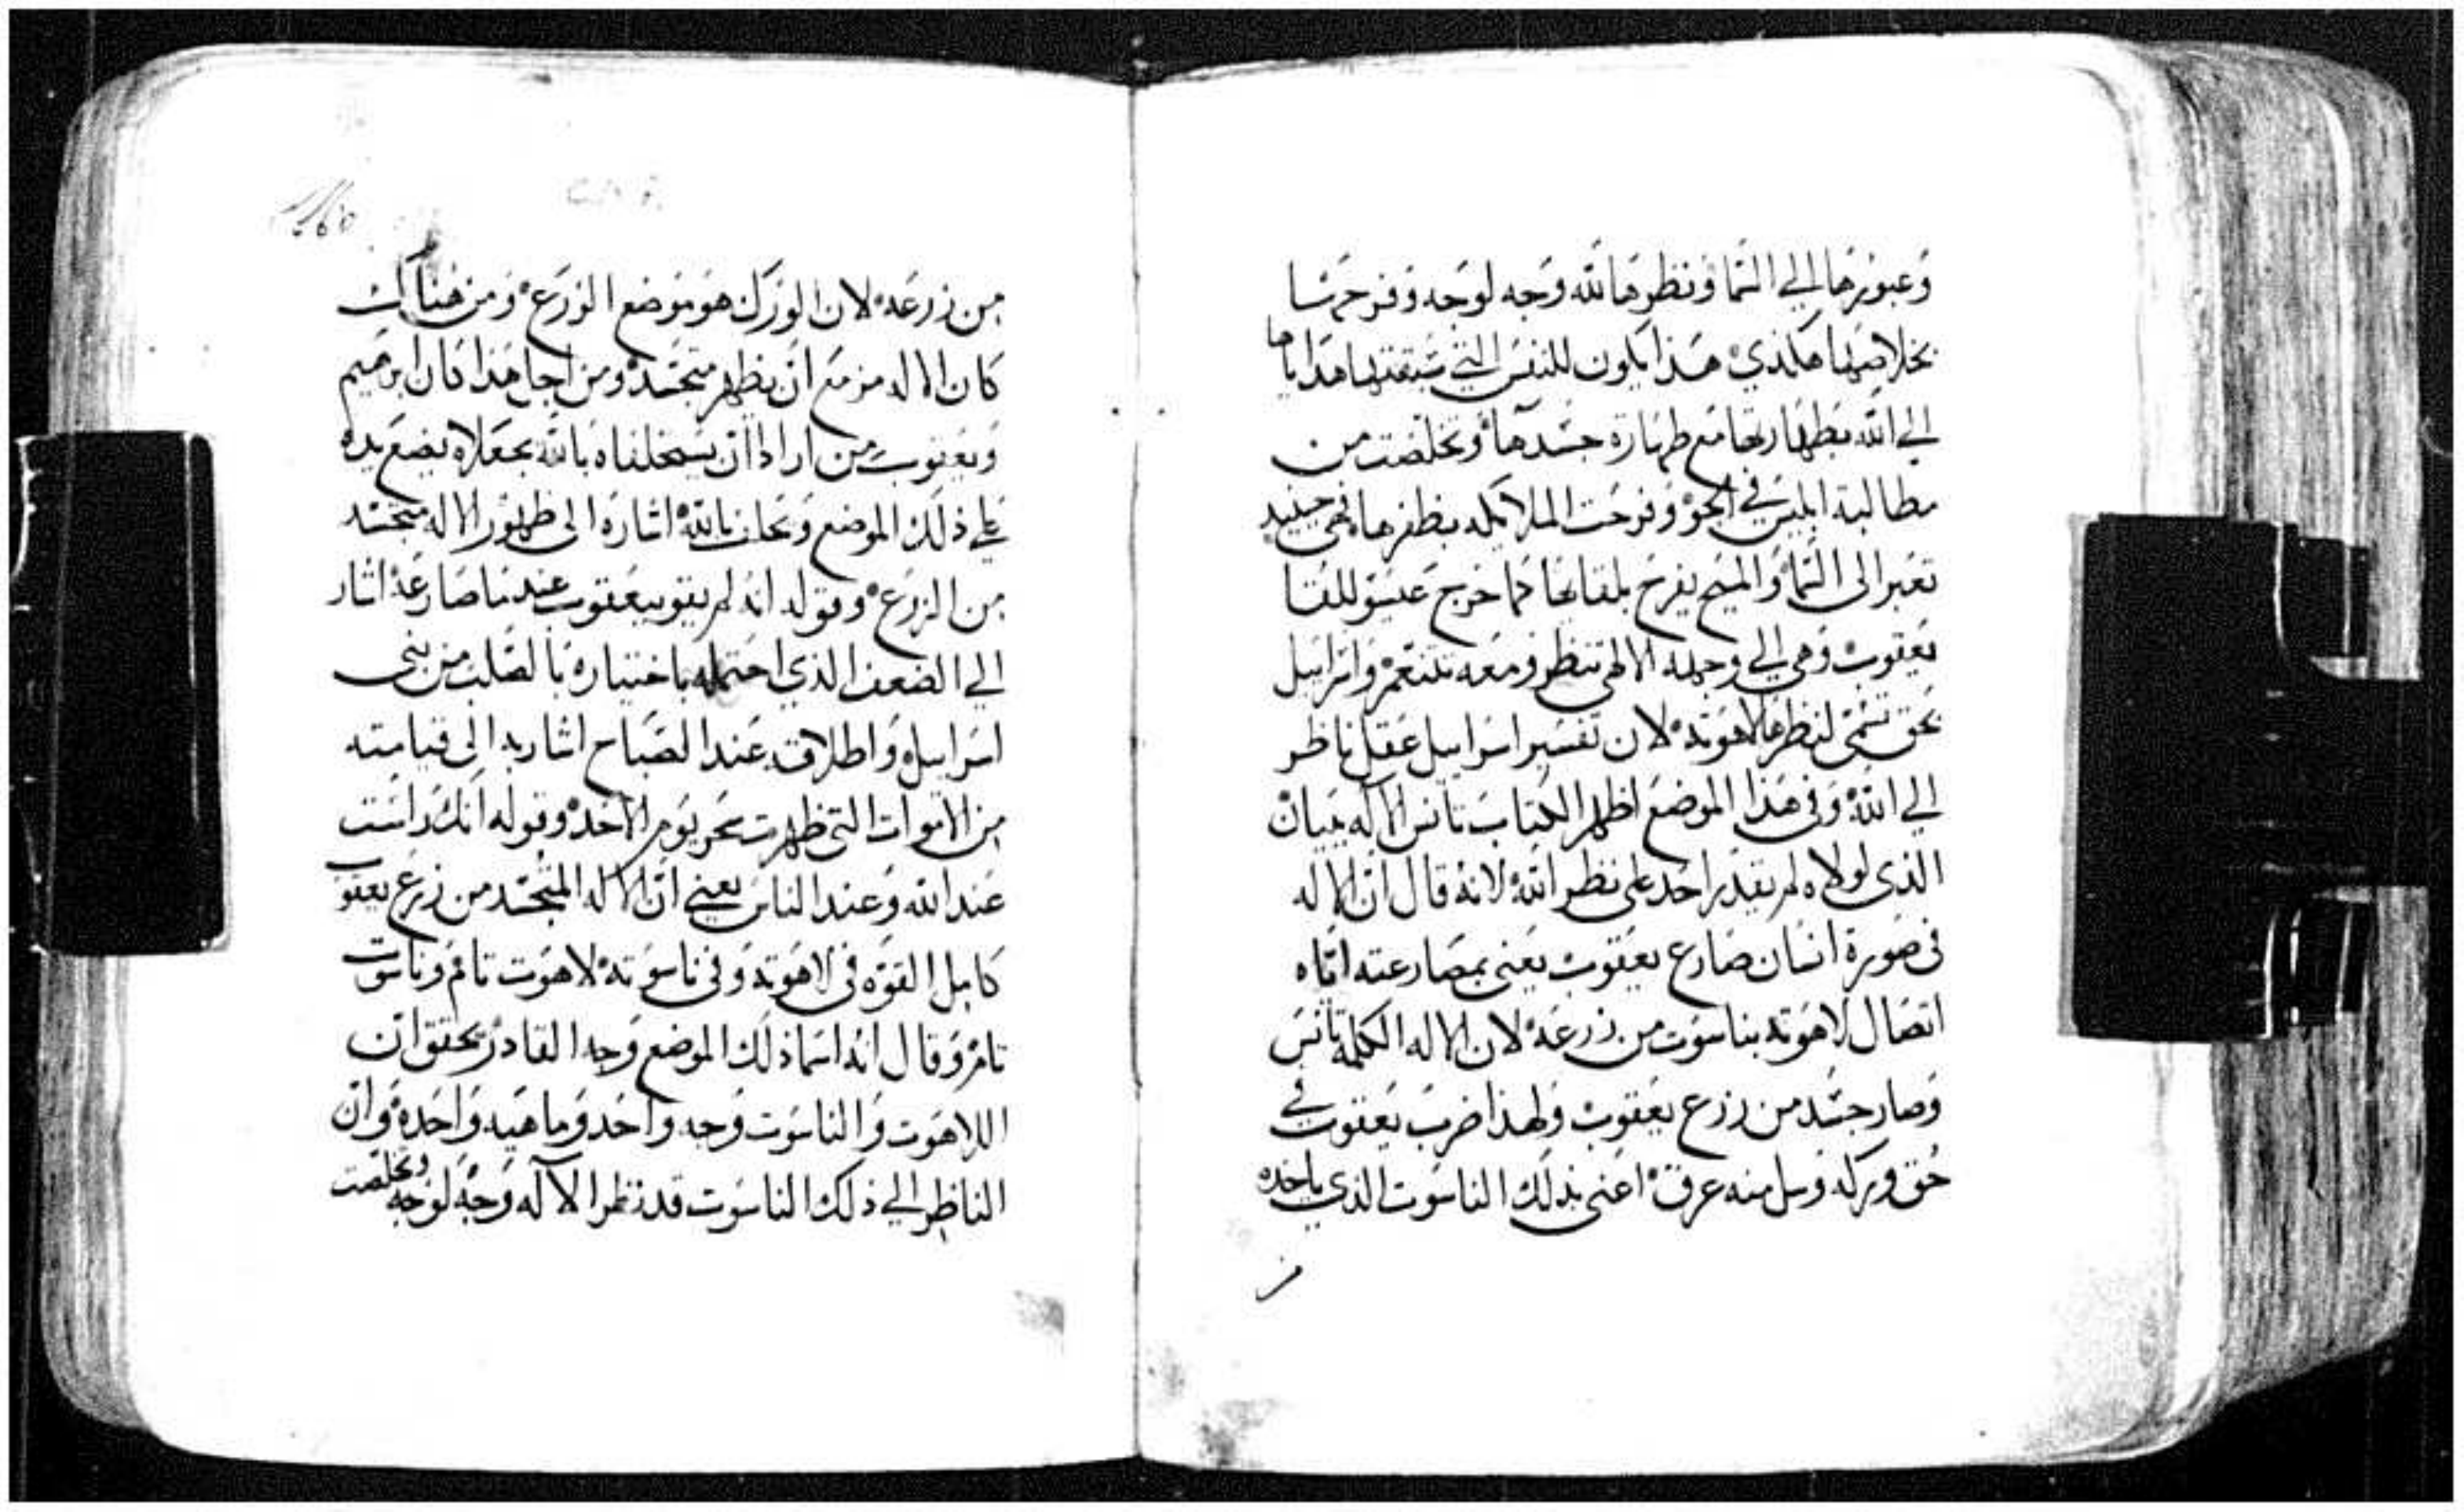 وعبورها الي السما ونظرها لله وجه لوجه وفرحمسا
بخلاصها هكذي هذا يكون للنفس التي سبقتها هداياها
الي الله بطهارتها مع طهارة جسدها وتخلصت من
مطالبة ابليس في الجو وفرحت الملايكه بظفرها فهي حينيد
تعبر الي السما والمسيح يفرح بلقايها كما خرج عيسو للقا
يعقوب وهي الي وجهه الالهي تنظر ومعه تتنعم واسراييل
بحق تسمي لنظرها لاهوته لان تفسير اسراييل عقل ناظر
الي الله وفي هذا الموضع اظهر الكتاب تانس الاله ببيان
الذي لولاه لم يقدر احد علي نظر الله لانه قال ان الاله
في صورة انسان صارع يعقوب يعني بمصارعته اياه
اتصال لاهوته بناسوت من زرعه لان الاله الكلمه تانس
وصار جسد من زرع يعقوب ولهذا ضرب يعقوب في
حق وركه وسل منه عرق اعني بذلك الناسوت الذي ياخده
من
من زرعه لان الورك هو موضع الزرع ومن هناك
كان الاله مزمع ان يظهر متجسد ومن اجل هذا كان ابرهيم
ويعقوب من ارادا ان يستحلفاه بالله يجعلاه يضع يده
علي ذلك الموضع ويحلف بالله اشاره الي ظهور الاله متجسد
من الزرع وقوله انه لم يقو بيعقوب عندما صارعه اشار
الي الضعف الذي احتمله باختياره بالصلب من بني
اسراييل واطلاقه عند الصباح اشار به الي قيامته
من الاموات التي ظهرت سحر يوم الاحد وقوله انك راست
عند الله وعند الناس يعني ان الاله المتجسد من زرع يعقوب
كامل القوه في لاهوته وفي ناسوته لاهوت تام وناسوت
تام وقال انه اسما ذلك الموضع وجه القادر تحقق ان
اللاهوت والناسوت وجه واحد وماهيه واحده وان
الناظر الي ذلك الناسوت قد نظر الاله وجه لوجه وتخلصت